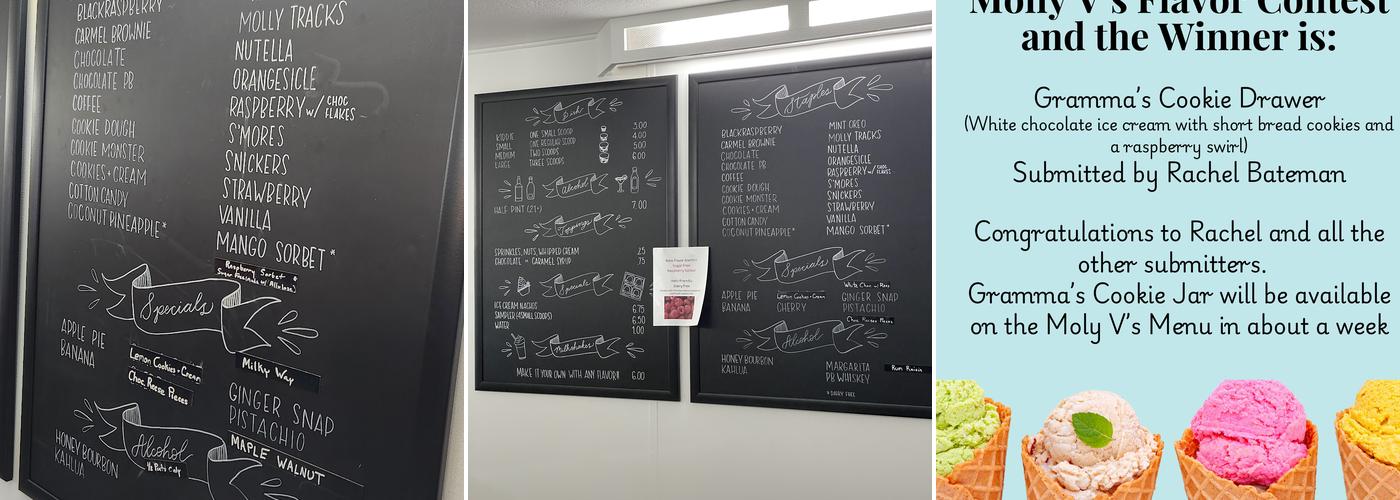 BLACKRASPBERRY
CARMEL BROWNIE
CHOCOLATE
CHOCOLATE PB
COFFEE
COOKIE DOUGH
COOKIE MONSTER
COOKIES+CREAM
COTTON CANDY
COCONUT PINEAPPLE*
MOLLY TRACKS
NUTELLA
ORANGESICLE
RASPBERRY W/ CHOC FLAKES
S'MORES
SNICKERS
STRAWBERRY
VANILLA
MANGO SORBET*
Raspberry Sorbet *
Specials
APPLE PIE
BANANA
Lemon Cookies+Cream
Choc Reese Pieces
Milky Way
GINGER SNAP
PISTACHIO
MAPLE WALNUT
Alcohol
½ Pints Only
HONEY BOURBON
KAHLUA
Dish
KIDDIE ONE SMALL SCOOP 3.00
SMALL ONE REGULAR SCOOP 4.00
MEDIUM TWO SCOOPS 5.00
LARGE THREE SCOOPS 6.00
Alcohol
HALF PINT (21+) 7.00
Toppings
SPRINKLES, NUTS, WHIPPED CREAM .25
CHOCOLATE + CARAMEL SYRUP .75
Specials
ICE CREAM NACHOS 6.75
SAMPLER (4 SMALL SCOOPS) 6.50
WATER 1.00
Milkshakes
MAKE IT YOUR OWN WITH ANY FLAVOR!! 6.00
New Flavor Alert!!
Sugar Free
Raspberry Sorbet
Dairy Free
Staples
BLACKRASPBERRY
CARMEL BROWNIE
CHOCOLATE
CHOCOLATE PB
COFFEE
COOKIE DOUGH
COOKIE MONSTER
COOKIES+CREAM
COTTON CANDY
COCONUT PINEAPPLE*
MINT OREO
MOLLY TRACKS
NUTELLA
ORANGESICLE
RASPBERRY W/ CHOC FLAKES
S'MORES
SNICKERS
STRAWBERRY
VANILLA
MANGO SORBET*
Specials
APPLE PIE
BANANA
Lemon Cookies+Cream
CHERRY
White Choc w/ Rasp
GINGER SNAP
PISTACHIO
Choc Reese Pieces
Alcohol
HONEY BOURBON
KAHLUA
MARGARITA
PB WHISKEY
Rum Raisin
* DAIRY FREE
Molly V's Flavor Contest
and the Winner is:
Gramma's Cookie Drawer
(White chocolate ice cream with short bread cookies and
a raspberry swirl)
Submitted by Rachel Bateman
Congratulations to Rachel and all the
other submitters.
Gramma's Cookie Jar will be available
on the Moly V's Menu in about a week